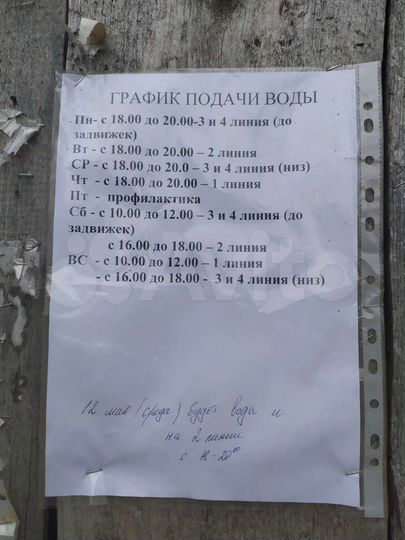 ГРАФИК ПОДАЧИ ВОДЫ
Пн- с 18.00 до 20.00-3 и 4 линия (до
задвижек)
Вт - с 18.00 до 20.00 – 2 линия
СР - с 18.00 до 20.0 – 3 и 4 линия (низ)
Чт - с 18.00 до 20.00 – 1 линия
Пт - профилактика
Сб - с 10.00 до 12.00 – 3 и 4 линия (до
задвижек)
с 16.00 до 18.00 – 2 линия
ВС - с 10.00 до 12.00 – 1 линия
- с 16.00 до 18.00 - 3 и 4 линия (низ)
12 мая (среда) будет вода и
на 2 линии
с 18-20⁰⁰
Avito